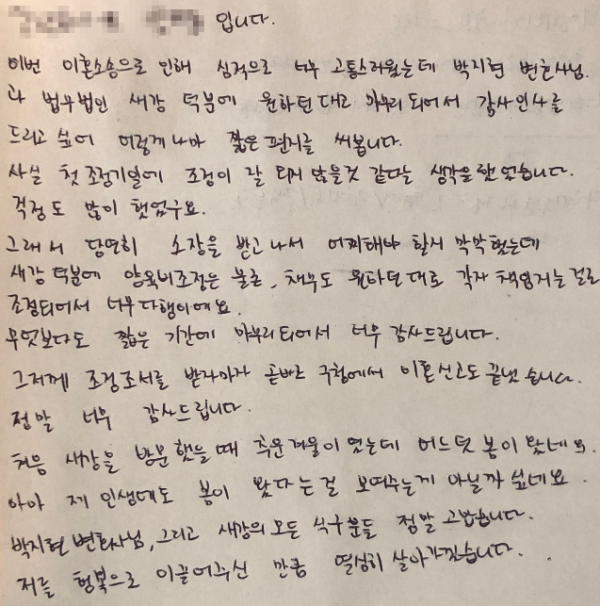 입니다.
이번 이혼소송으로 인해 심적으로 너무 고통스러웠는데 박지현 변호사님.
과 법무법인 새강 덕분에 원하던대로 마무리 되어서 감사인사를
드리고 싶어 이렇게나마 짧은편지를 써봅니다.
사실 첫 조정기일에 조정이 잘 되지 않을것 같다는 생각을 했었습니다.
걱정도 많이 했었구요.
그래서 당연히 소장을 받고 나서 어찌해야 할지 막막했는데
새강 덕분에 양육비조정은 물론, 채무도 원하던대로 각자 책임지는걸로
조정되어서 너무다행이에요.
무엇보다도 짧은 기간에 마무리되어서 너무 감사드립니다.
그저께 조정조서를 받자마자 곧바로 구청에서 이혼신고도 끝냈습니다.
정말 너무 감사드립니다.
처음 새강을 방문했을때 추운겨울이었는데 어느덧 봄이 왔네요.
아마 제 인생에도 봄이 왔다는걸 보여주는게 아닐까 싶네요.
박지현변호사님, 그리고 새강의 모든 식구분들 정말 고맙습니다.
저를 행복으로 이끌어주신 만큼 열심히 살아가겠습니다.